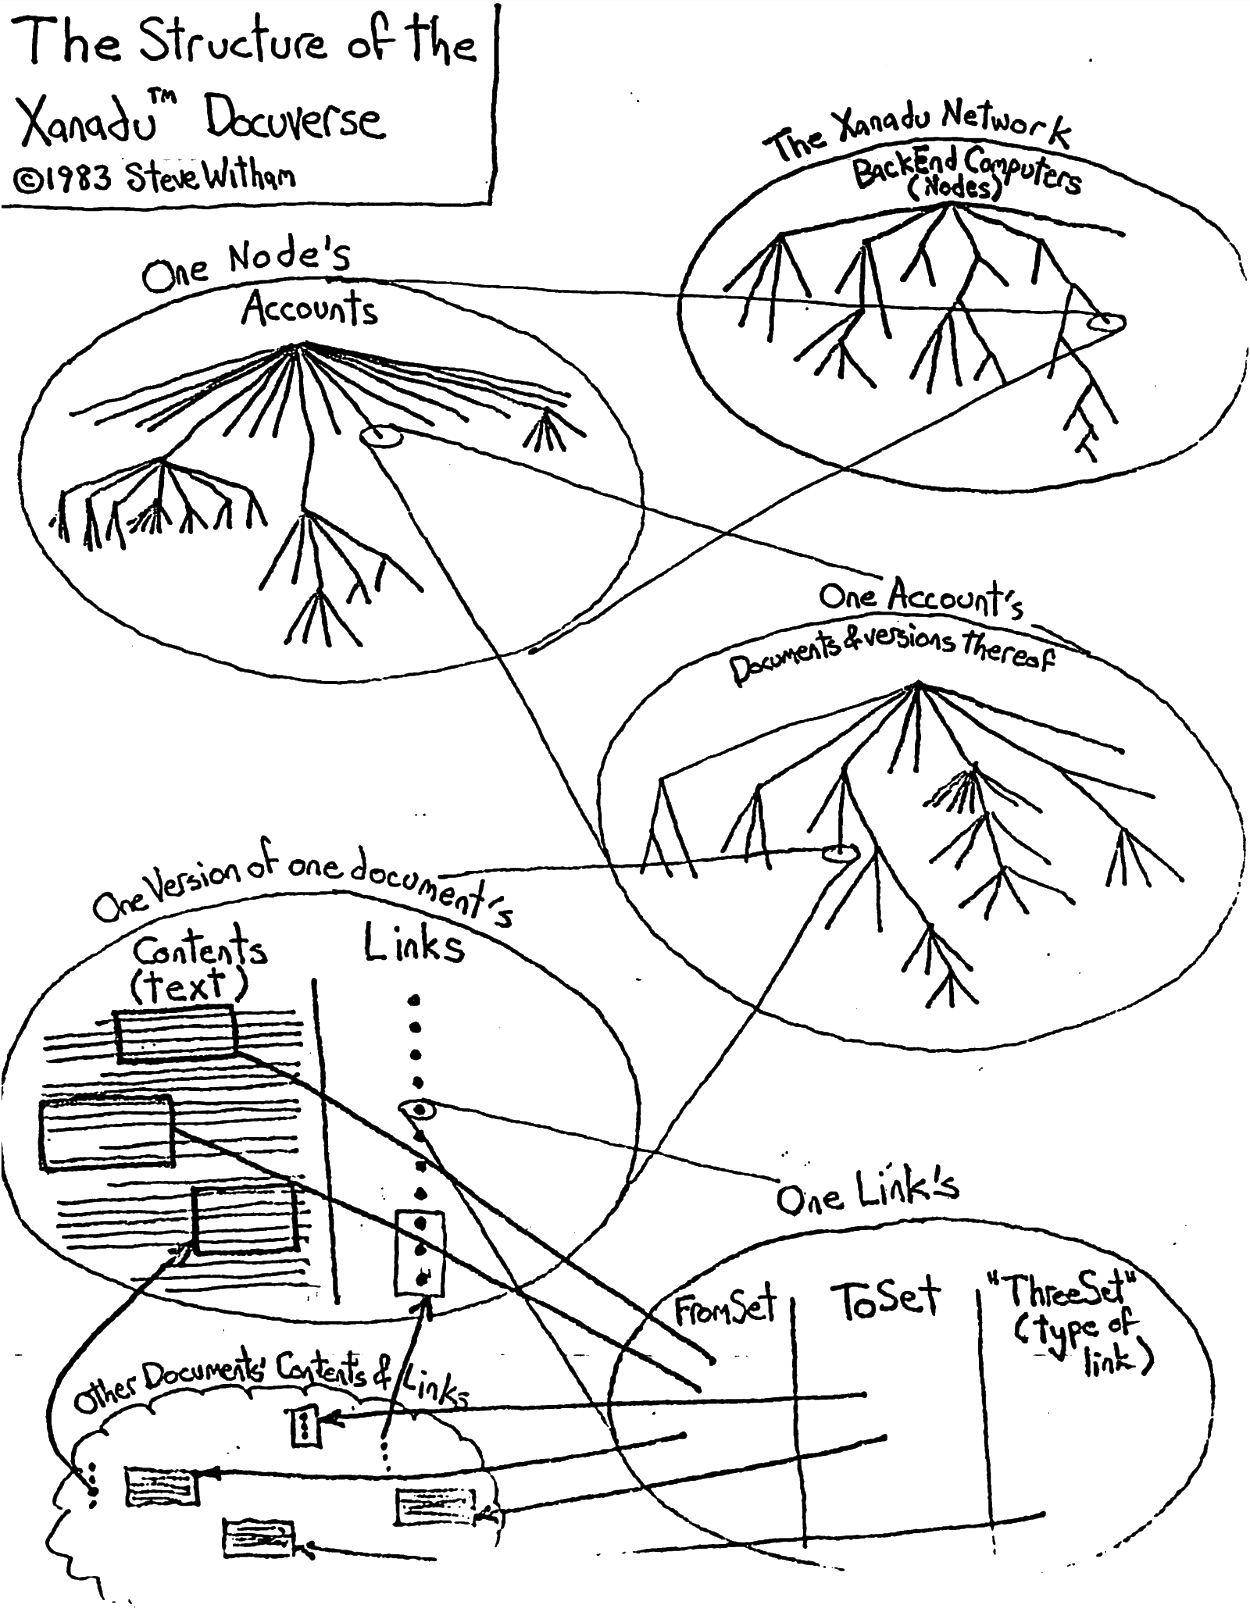 The Structure of the
Xanadu™ Docuverse
©1983 Steve Witham
The Xanadu Network
BackEnd Computers
(Nodes)
One Node's
Accounts
One Account's
Documents & versions thereof
One Version of one document's
Contents
(text)
Links
One Link's
FromSet
ToSet
"ThreeSet"
(type of
link)
Other Documents' Contents & Links